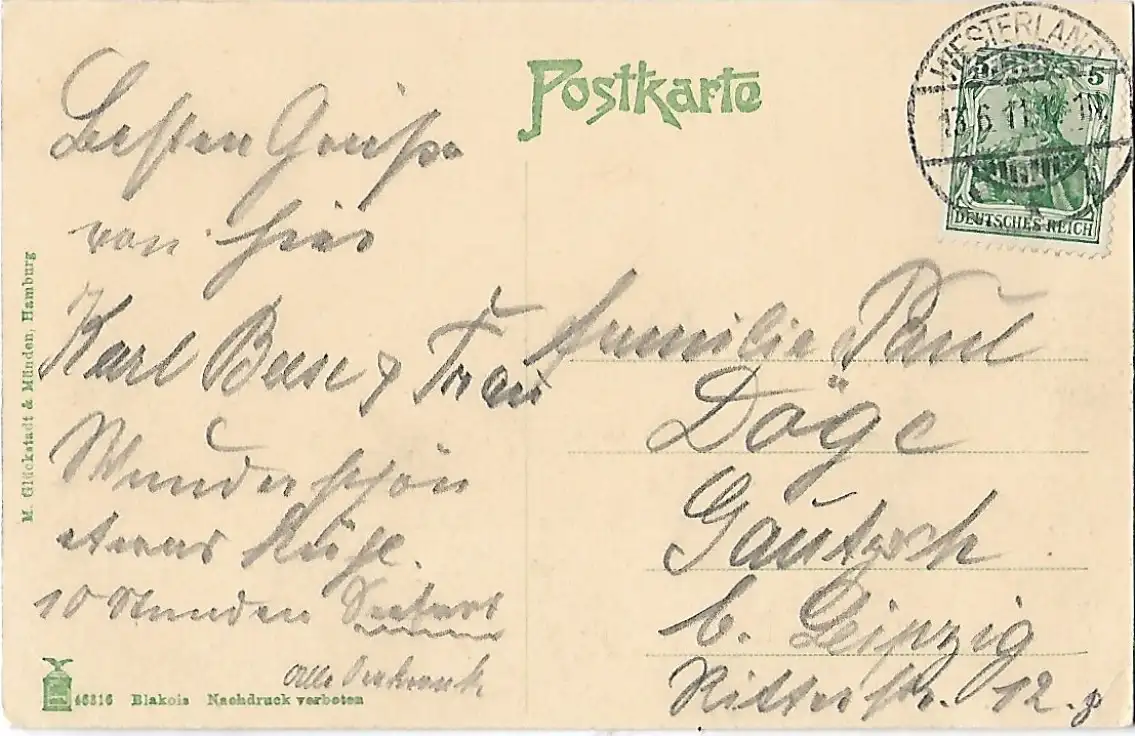 Postkarte
WESTERLAND
13.6.11.
5 5
DEUTSCHES REICH
Besten Grüße
von hier
Karl Beese & Frau
Wunderschön
etwas kühl.
10 Stunden Seefart
Alle Seekrank
Familie Paul
Döge
Gautzsch
b. Leipzig
Ritterstr. 12.
M. Glückstadt & Münden, Hamburg
46316 Blakois Nachdruck verboten